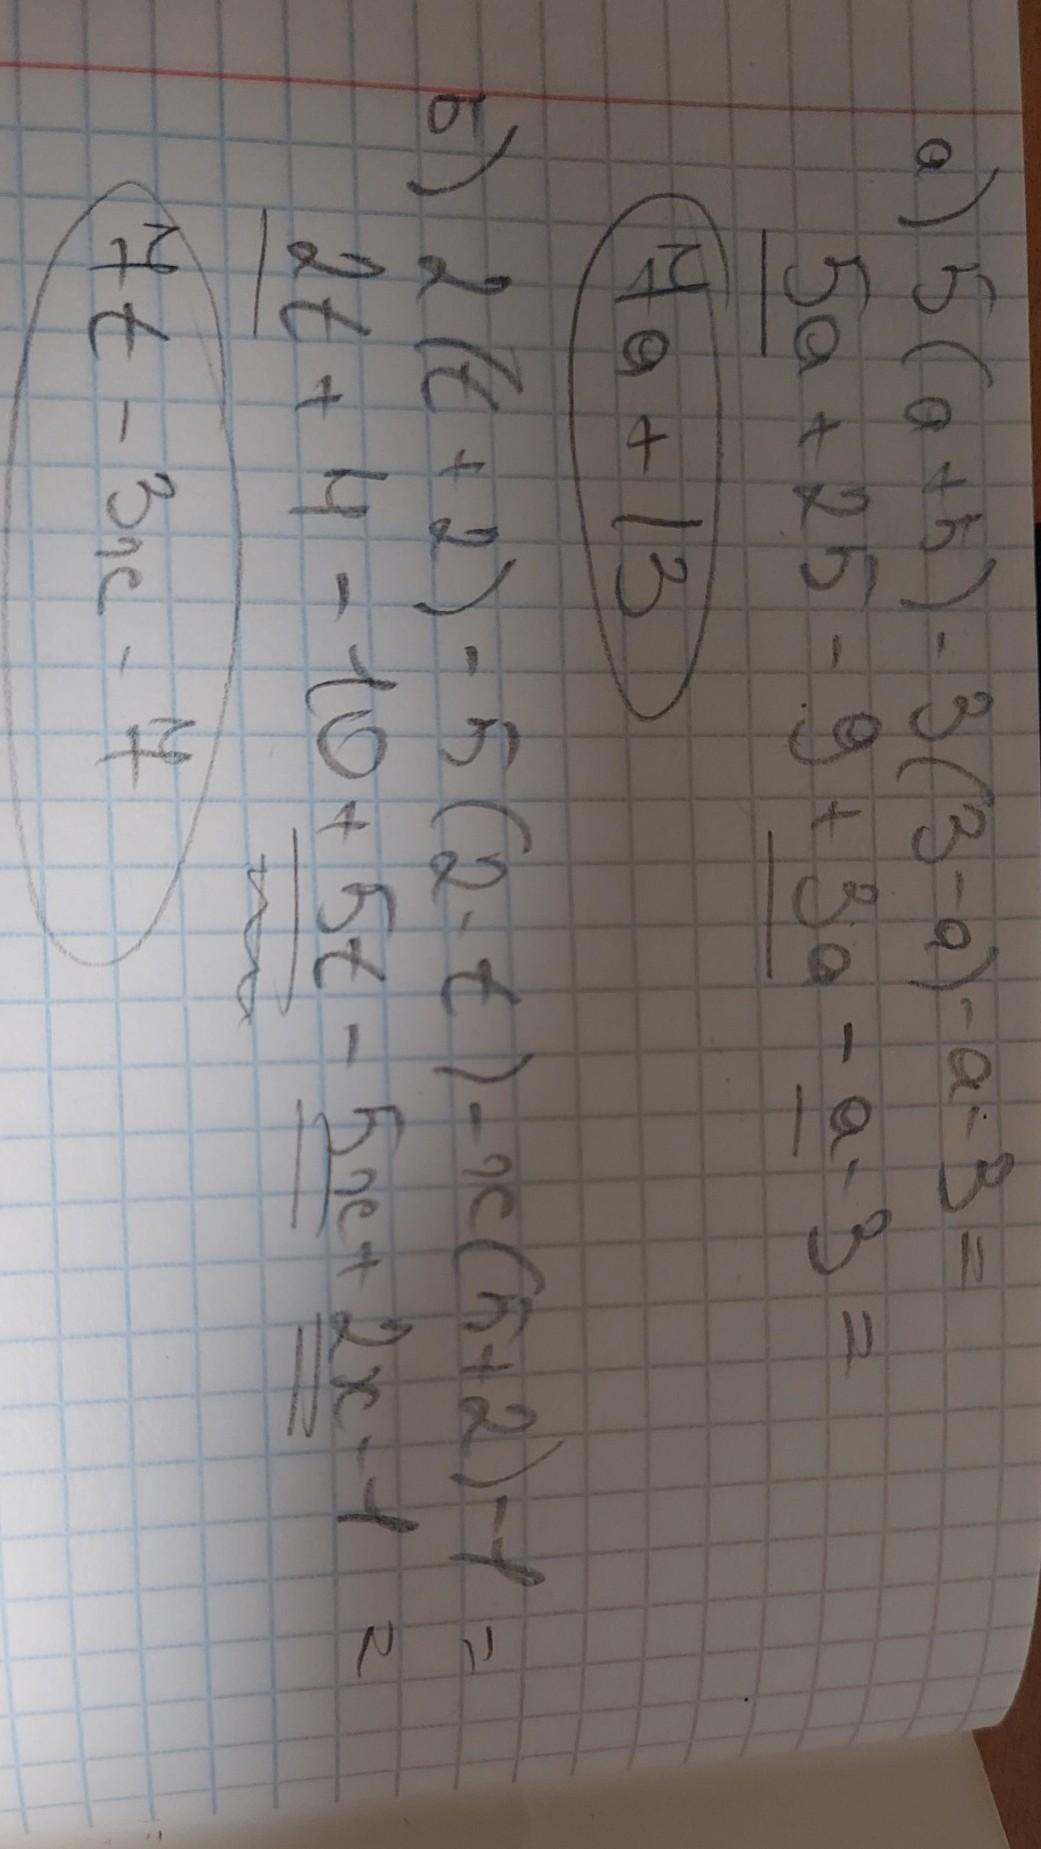 а) 5(a+5)-3(3-a)-a-3=
5a+25-9+3a-a-3=
7a+13
б) 2(t+2)-5(2-t)-x(5+2)-1=
2t+4-10+5t-5x+2x-1=
7t-3x-7